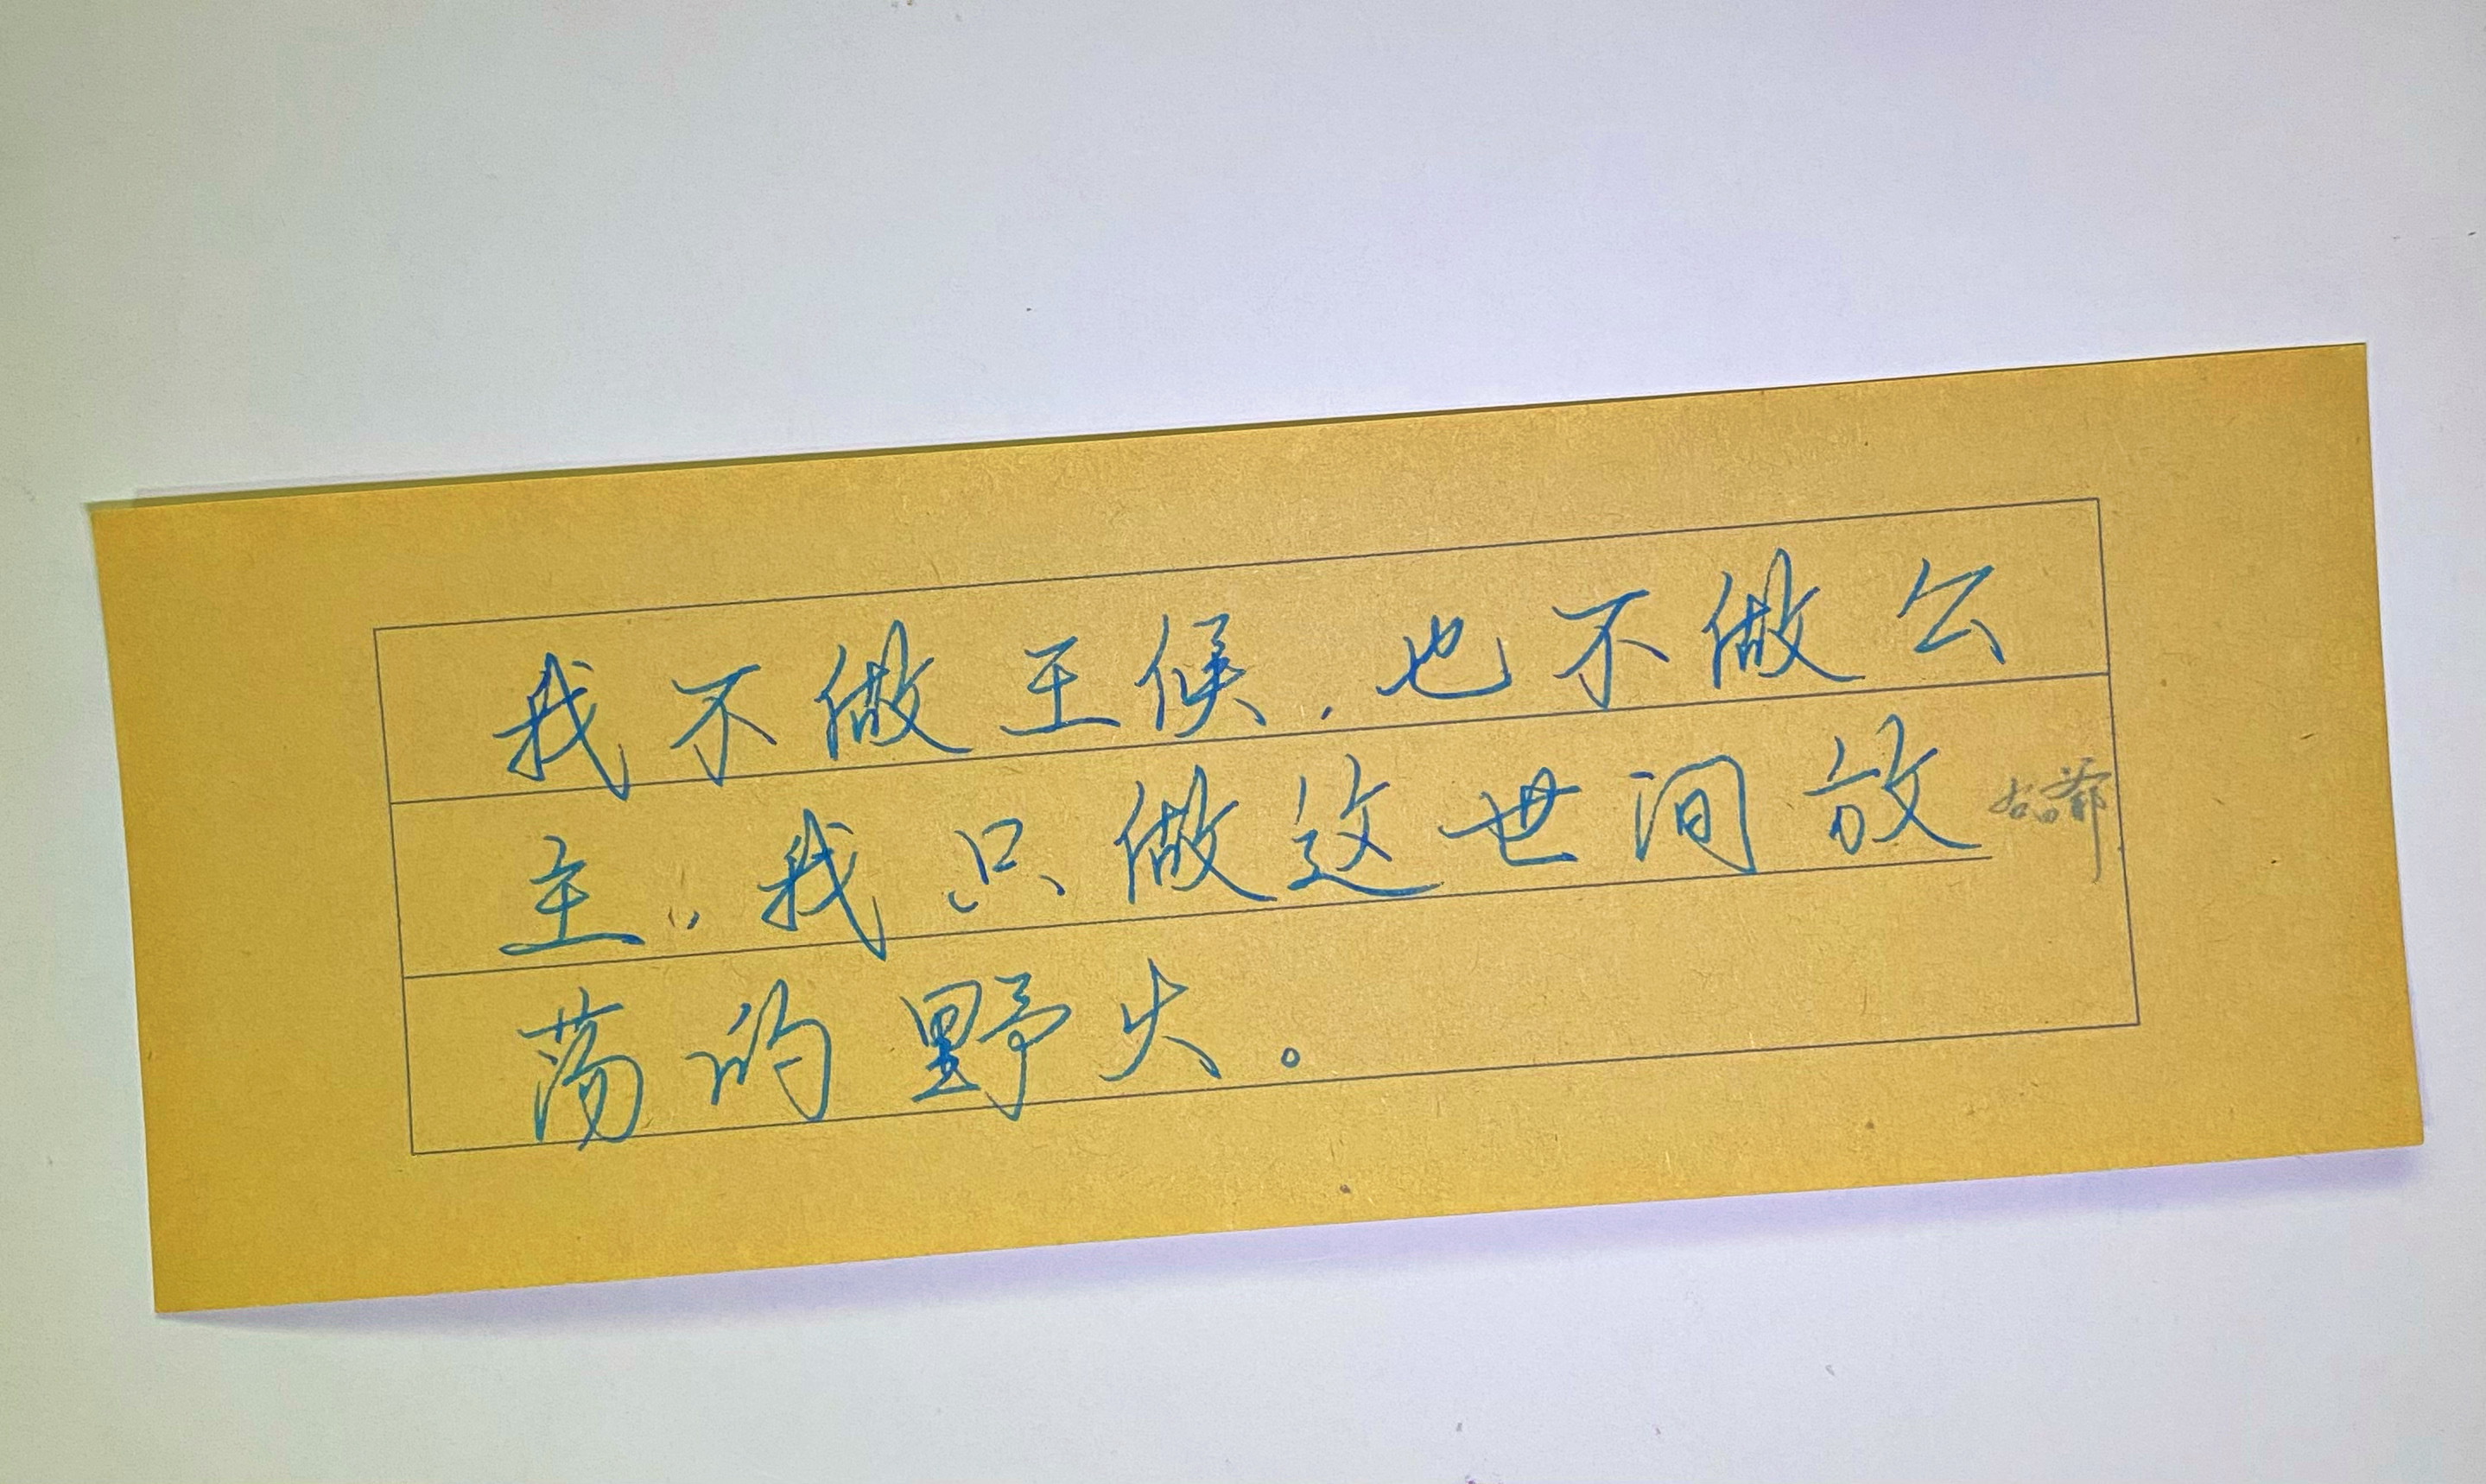 我不做王候,也不做公
主,我只做这世间放
荡的野火。